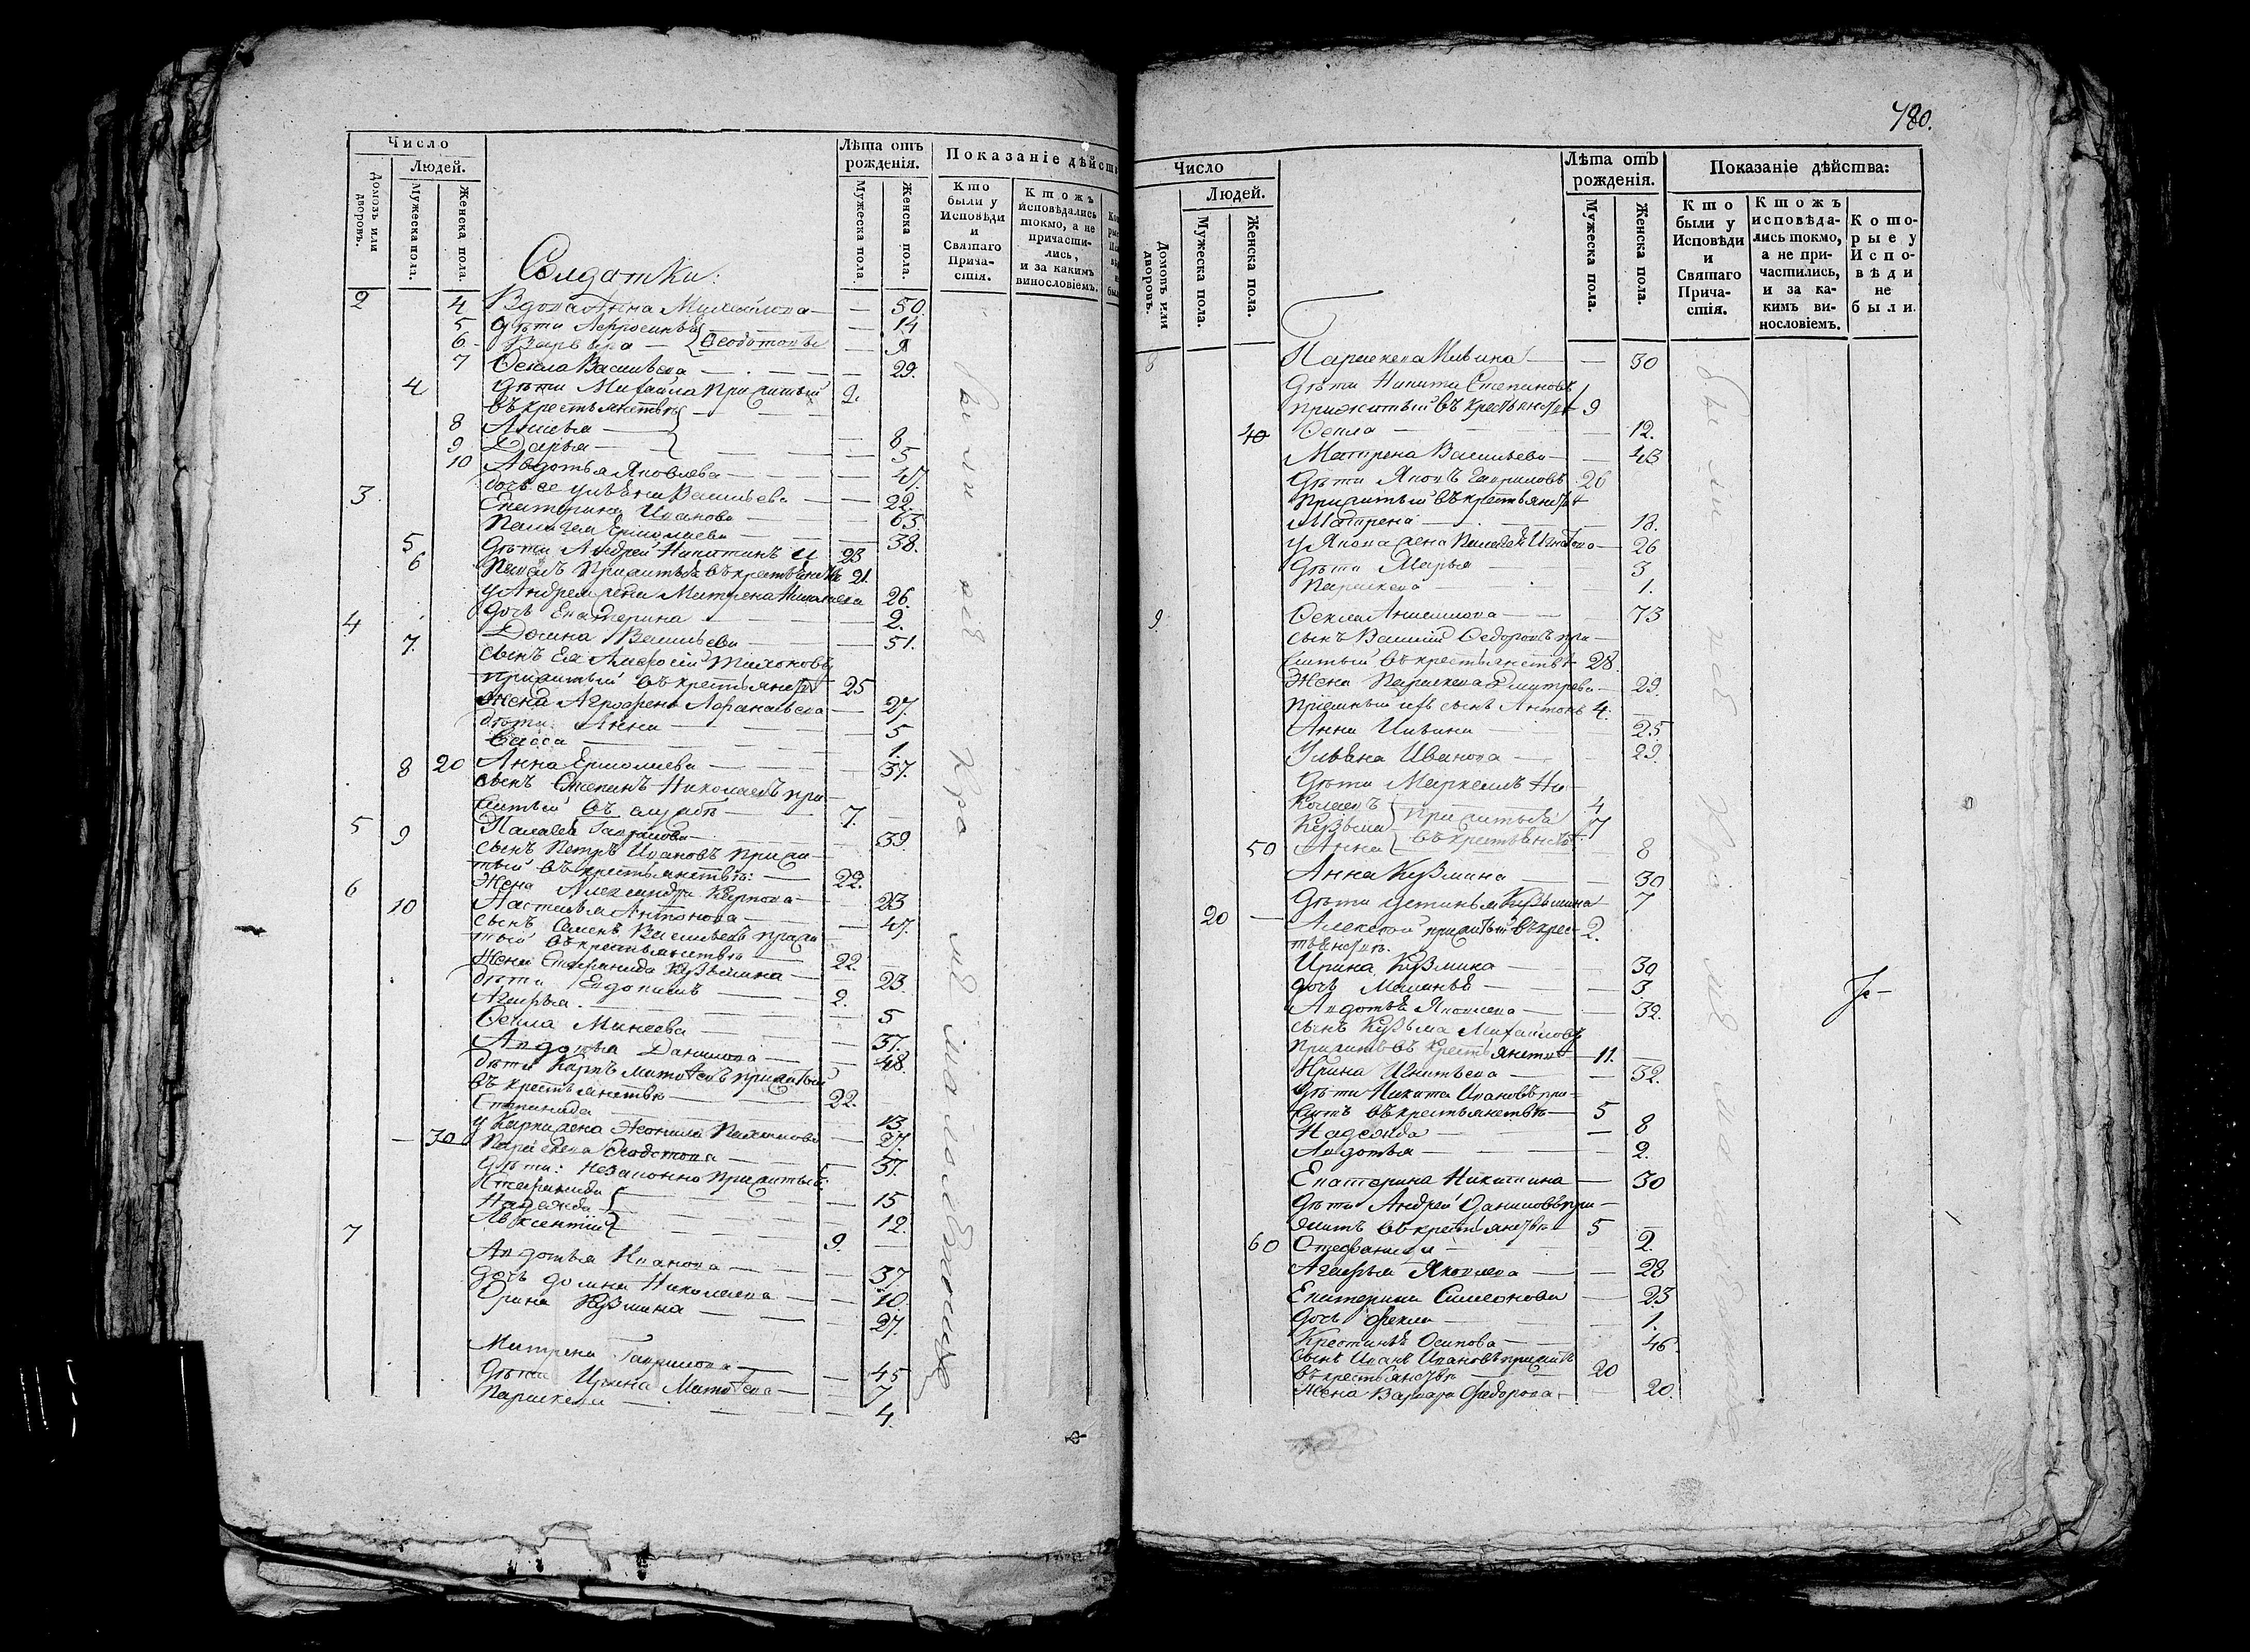 Число
Людей.
Домовъ или дворовъ.
Мужеска пола.
Женска пола.
Лѣта отъ рожденія.
Мужеска пола.
Женска пола.
Показаніе дѣйств
Кто были у Исповѣди и Святаго Причастія.
Ктожъ исповѣдались токмо, а не причастились, и за какимъ винословіемъ.
Солдатки:
2 4 Вдова Анна Михайлова — 50.
5 дѣти Афросинья — 14
6 Варвара — Ѳеодотовы — 9
7 Ѳекла Васильева — 29.
4 Дѣти Михайла прижитый 9.
въ крестьянствѣ
8 Анисья — 8
9 Дарья — 5
10 Авдотья Яковлева — 47.
дочь ее Ульяна Васильева — 22.
3 Екатерина Иванова — 63
Ермолаева — 38.
5 Дѣти Андрей Никитинъ и 23
6 прижитыя въ крестьянствѣ 21.
у Андрея жена Матрена 26.
дочь Екатерина — 2.
4 Домна Васильева — 51.
7. сынъ ея Амвросій Тихоновъ
прижитый въ крестьянствѣ 25
жена Агрофена Афанасьева — 27.
дѣти Анна — 5
Васса — 1.
8 20 Анна Ермолаева — 37.
сынъ Степанъ Николаевъ при-
житый въ службѣ — 7.
5 Пелагея Гаврилова — 39.
9 сынъ Петръ Ивановъ прижи-
тый въ крестьянствѣ: — 22.
Жена Александра Карпова — 23
6 Настасья Антонова — 47.
10 сынъ Семенъ Васильевъ прижи
тый въ крестьянствѣ — 22.
Жена Стефанида Кузьмина — 23.
дѣти Евдокимъ — 2.
Агафья — 5
Ѳекла Минеева — 37.
Авдотья Данилова — 48.
дѣти Карпъ Матвеевъ прижитый
въ крестьянствѣ — 22.
Степанида — 13
у Карпа жена — 27.
30 Параскева Ѳеодотова — 37.
Дѣти: незаконно прижитыя:
Стефанида — 15
Надежда — 12.
Авксентій — 9.
7 Авдотья Иванова — 37.
дочь Домна Николаева — 10.
Орина Кузмина — 27.
Матрена Гаврилова — 45
Дѣти Ирина Матвеева — 7
Параскева — 4.
были
780.
Число
Людей.
Домовъ или дворовъ.
Мужеска пола.
Женска пола.
Лѣта отъ рожденія.
Мужеска пола.
Женска пола.
Показаніе дѣйства:
Кто были у Исповѣди и Святаго Причастія.
Ктожъ исповѣдались токмо, а не причастились, и за какимъ винословіемъ.
Которые у Исповѣди не были.
8 Параскева — 30
Дѣти Никита Степановъ
прижитый въ крестьянствѣ 9
40 Ѳекла — 12.
Матрена Васильева — 43
Дѣти Яковъ Гавриловъ 26
прижитый въ крестьянствѣ
Матрена — 18.
у Якова жена Пелагея Игнатова — 26
Дѣти Марья — 3
Параскева — 1.
9 Ѳекла Анисимова — 73
сынъ Василій Ѳедоровъ при-
житый въ крестьянствѣ 28.
Жена Параскева Дмитрева — 29.
Пріемный ихъ сынъ Антонъ 4.
Анна — 25.
Ульяна Иванова — 29.
Дѣти Маркелъ Ни-
колаевъ 4
Кузьма прижитыя 7
50 Анна въ крестьянствѣ 8
Анна Кузмина — 30
Дѣти Устинья Кузьмина 7
20 Алексѣй прижитый въ крес- 2.
тьянствѣ.
Ирина Кузмина — 30
дочь Меланья — 3
Авдотья Яковлева — 32.
сынъ Кузьма Михайловъ
прижитъ въ крестьянствѣ 11.
Ирина Игнатьева — 32.
Дѣти Никита Ивановъ при-
житъ въ крестьянствѣ — 5
Надежда — 8
Авдотья — 2.
Екатерина Никитина — 30
Дѣти Андрей Даниловъ при-
житъ въ крестьянствѣ 5
60 Стефанида — 2.
Агафья Яковлева — 28
Екатерина Симеонова — 23
дочь Фекла — 1.
Крестинья Осипова — 46.
сынъ Иванъ Ивановъ прижитъ
въ крестьянствѣ — 20
Жена Варвара Федорова — 20.